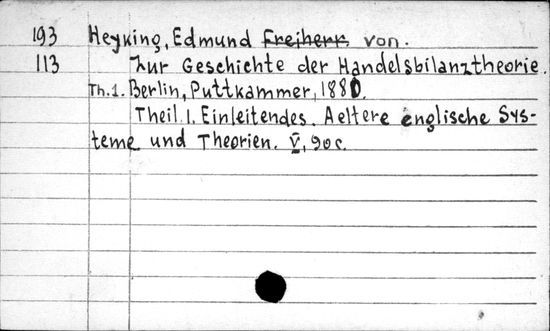 193 Heyking, Edmund Freiherr von.
113 Zur Geschichte der Handelsbilanztheorie.
Th.1. Berlin, Puttkammer, 1880.
Theil 1. Einleitendes. Aeltere englische Sys-
teme und Theorien. V, 90 c.